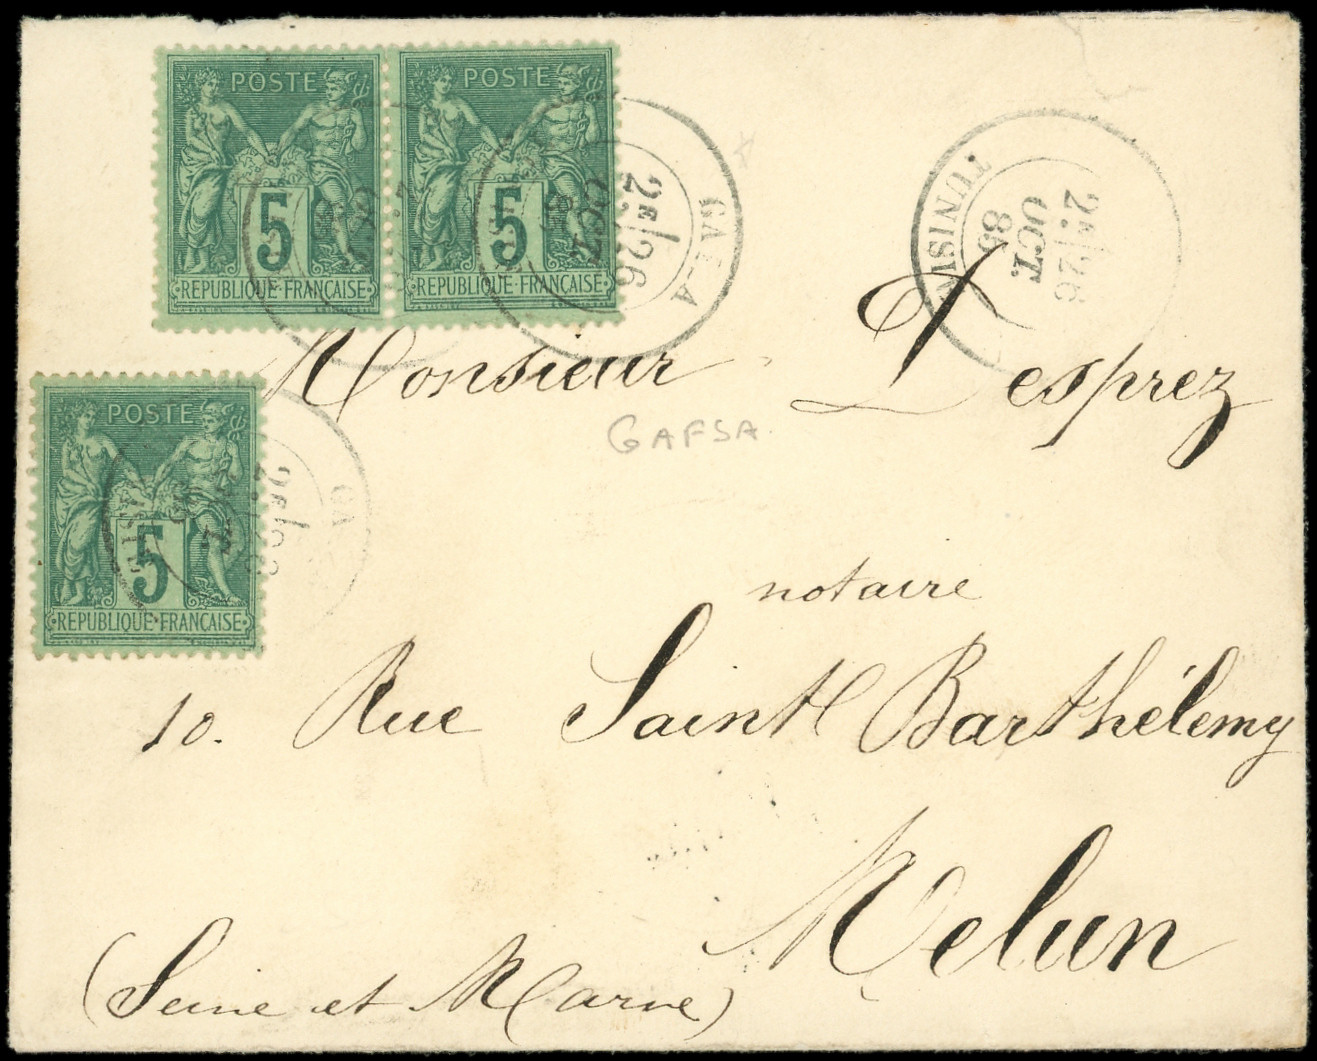 POSTE
5
RÉPUBLIQUE FRANÇAISE
POSTE
5
RÉPUBLIQUE FRANÇAISE
2E/26
OCT.
TUNISIE
2E/26
OCT.
85
Monsieur Desprez
GAFSA
POSTE
5
RÉPUBLIQUE FRANÇAISE
GA
notaire
10. Rue Saint Barthélemy
Melun
(Seine et Marne)